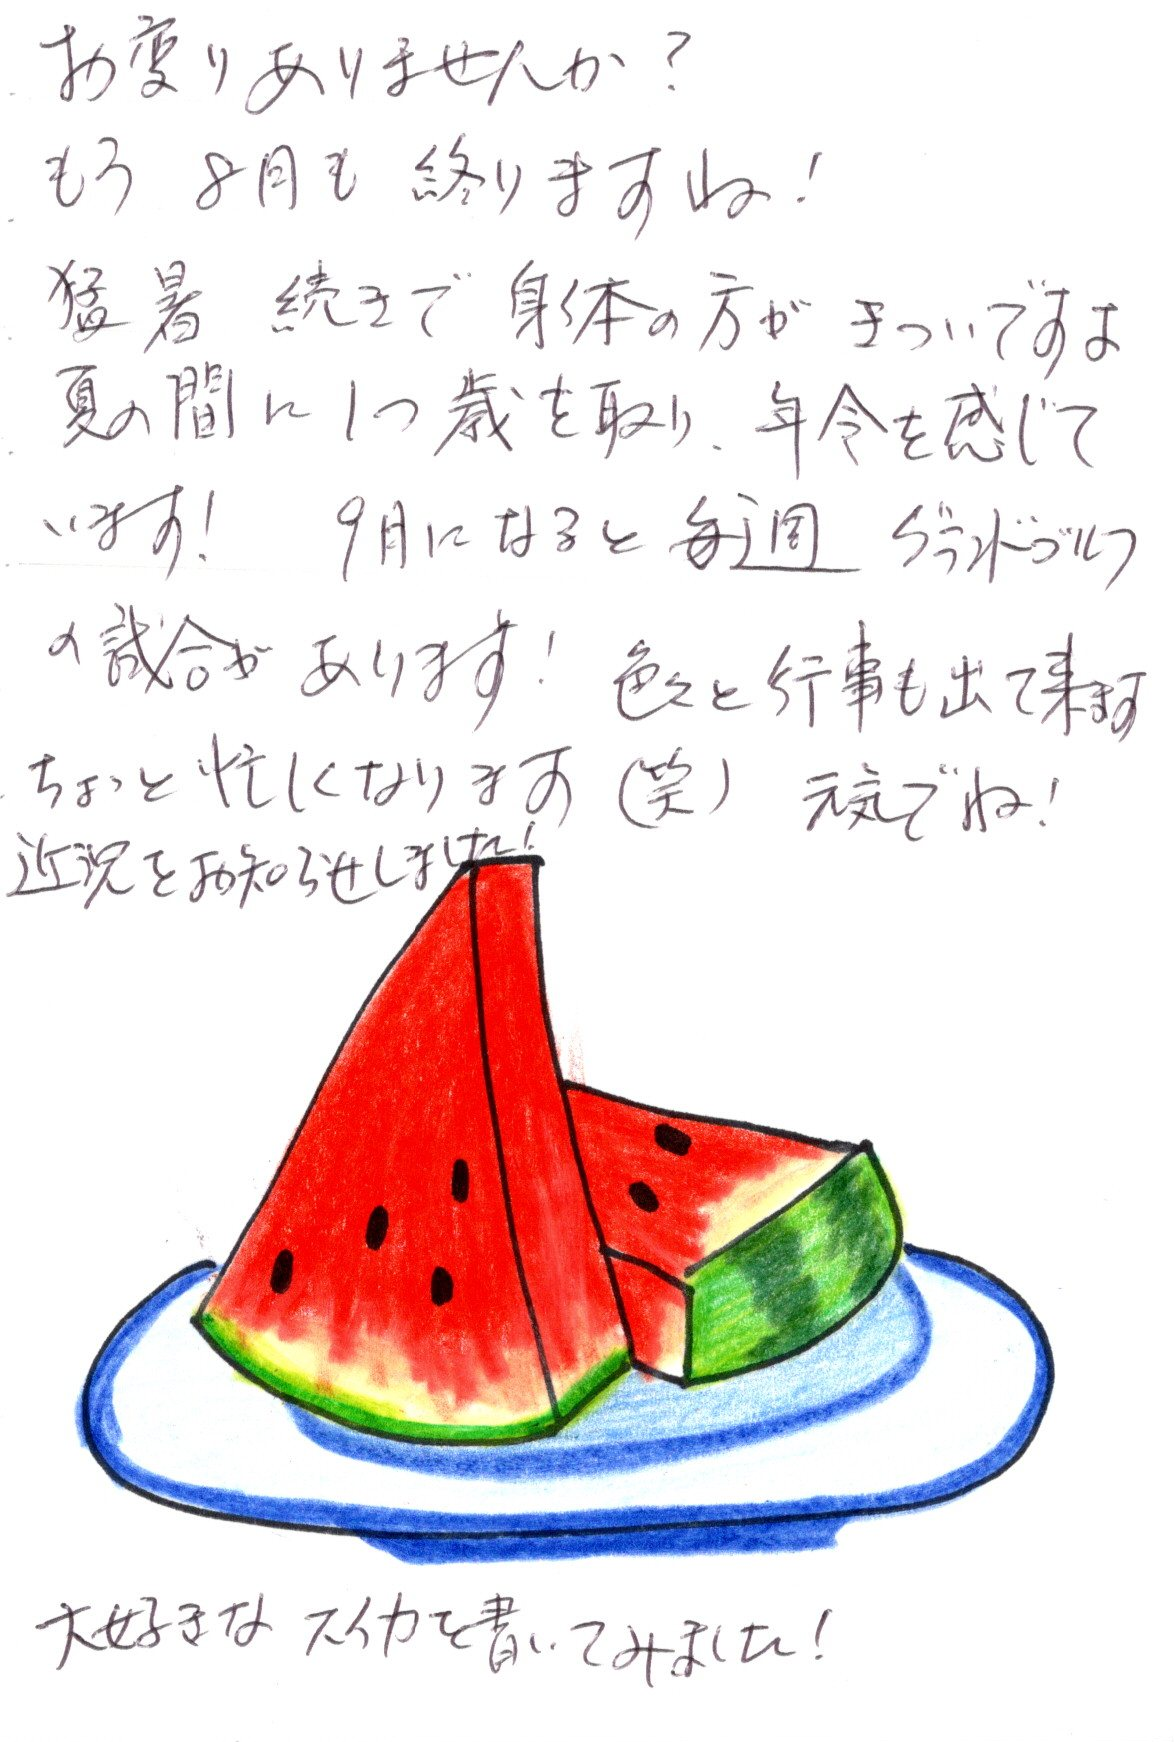 お変りありませんか?
もう 8月も 終りますね!
猛暑 続きで 身体の方が きついですよ
夏の間に1つ歳を取り、年令を感じて
います! 9月になると毎週 グランドゴルフ
の試合が あります! 色々と行事も出て来ます
ちょっと忙しくなります(笑) 元気でね!
近況をお知らせしました!
大好きな スイカを書いてみました!